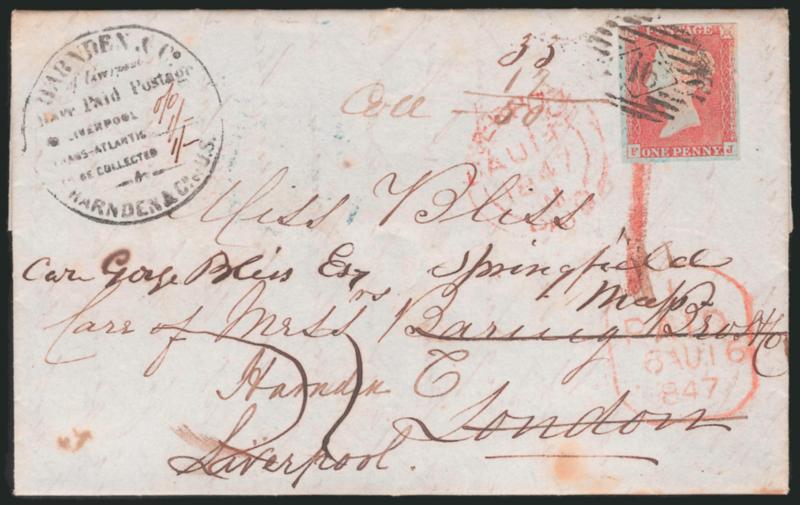 HARNDEN & Co.
of Liverpool
Have Paid Postage
LIVERPOOL
TRANS-ATLANTIC
TO BE COLLECTED
HARNDEN & Co. U.S.
1/-
Coll
33
17
50
POSTAGE
16
F ONE PENNY J
AU
1847
Miss Bliss
Care George Bliss Esq Springfield
Mass
Care of Messrs Baring Bros & Co
Harnden C
London
Liverpool.
PAID
6 AU 16
1847